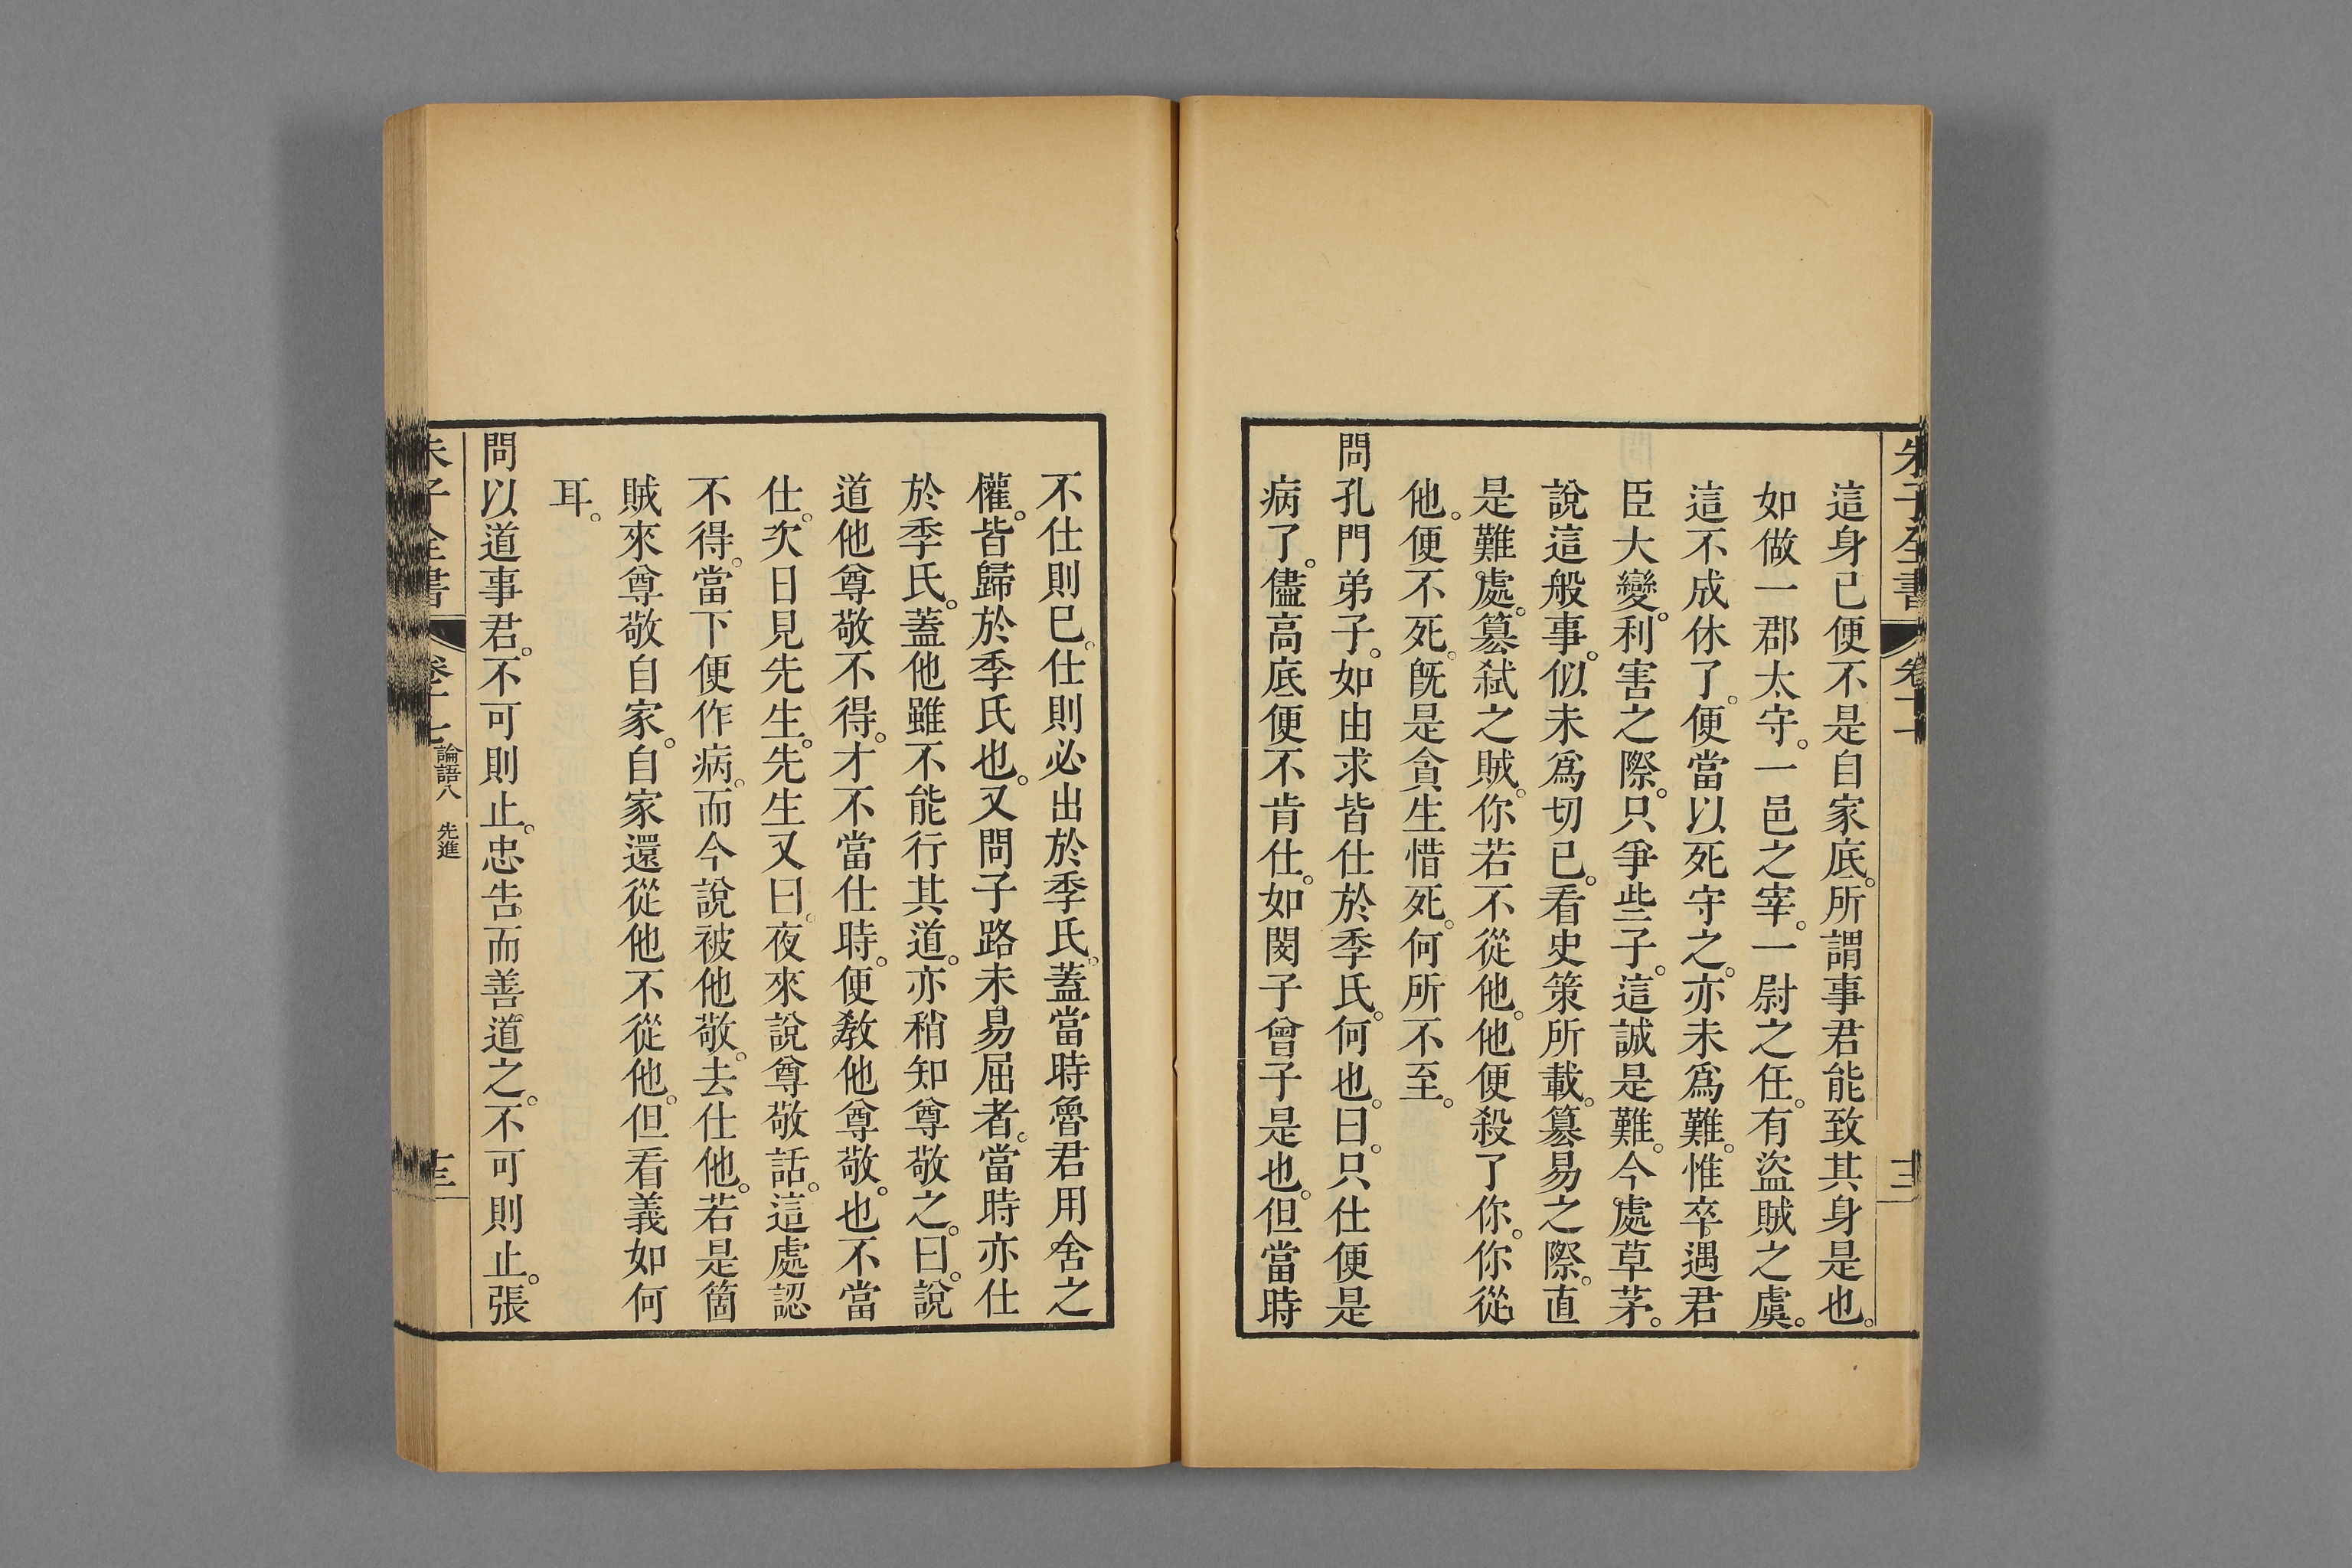 這身已便不是自家底。所謂事君能致其身是也。
如做一郡太守。一邑之宰。一尉之任。有盜賊之虞。
這不成休了。便當以死守之。亦未爲難。惟卒遇君
臣大變。利害之際。只爭些子。這誠是難。今處草茅。
說這般事。似未爲切已。看史策所載。簒易之際。直
是難處。簒弑之賊。你若不從他。他便殺了你。你從
他。便不死。旣是貪生惜死。何所不至。
問孔門弟子。如由求皆仕於季氏。何也。曰。只仕便是
病了。儘高底便不肯仕。如閔子曾子是也。但當時
不仕則已。仕則必出於季氏。蓋當時魯君用舍之
權。皆歸於季氏也。又問子路未易屈者。當時亦仕
於季氏。蓋他雖不能行其道。亦稍知尊敬之。曰。說
道他尊敬不得。才不當仕時。便敎他尊敬。也不當
仕。次日見先生。先生又曰。夜來說尊敬話。這處認
不得。當下便作病。而今說被他敬。去仕他。若是箇
賊來尊敬自家。自家還從他不從他。但看義如何
耳。
問以道事君。不可則止。忠告而善道之。不可則止。張
朱子全書
論語八 先進